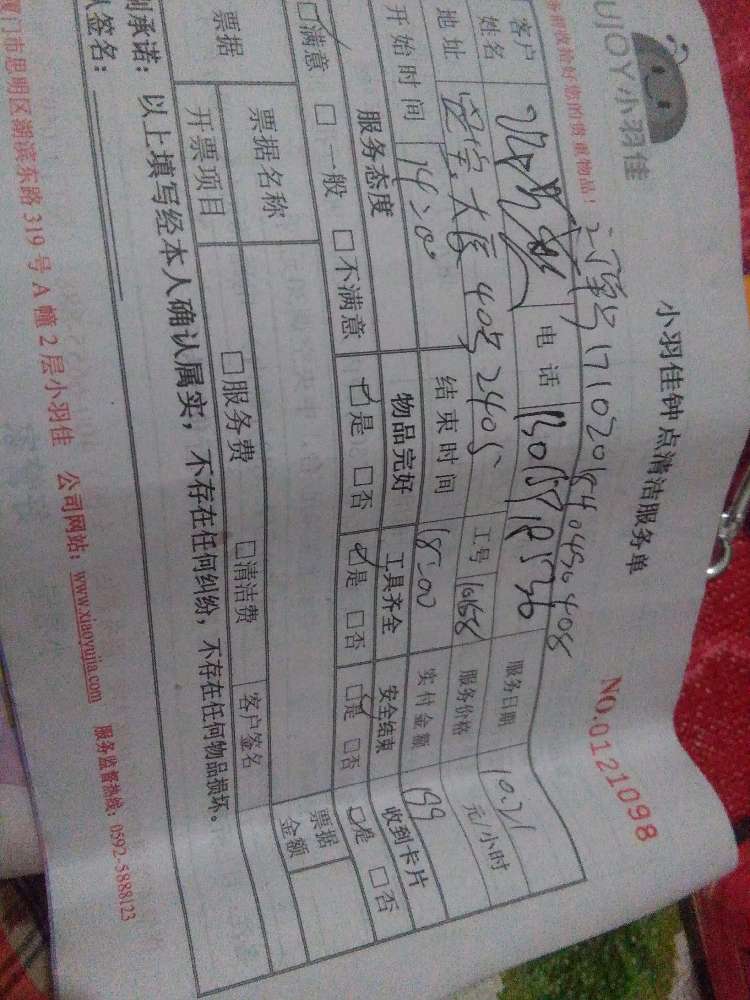 UJOY小羽佳
小羽佳钟点清洁服务单
NO.0121098
您的贵重物品!
客户姓名 电话 服务日期 10.21
地址 大厦 40号 2405 工号 服务价格 元/小时
开始时间 14:00 结束时间 18:00 实付金额 199
服务态度 物品完好 工具齐全 安全结束 收到卡片
☑满意 □一般 □不满意 ☑是 □否 ☑是 □否 ☑是 □否 ☑是 □否
票据 票据名称 客户签名 票据金额
开票项目 □服务费 □清洁费
承诺:以上填写经本人确认属实,不存在任何纠纷,不存在任何物品损坏。
签名:
厦门市思明区湖滨东路319号A幢2层小羽佳 公司网站:www.xiaoyujia.com 服务监督热线:0592-5888123